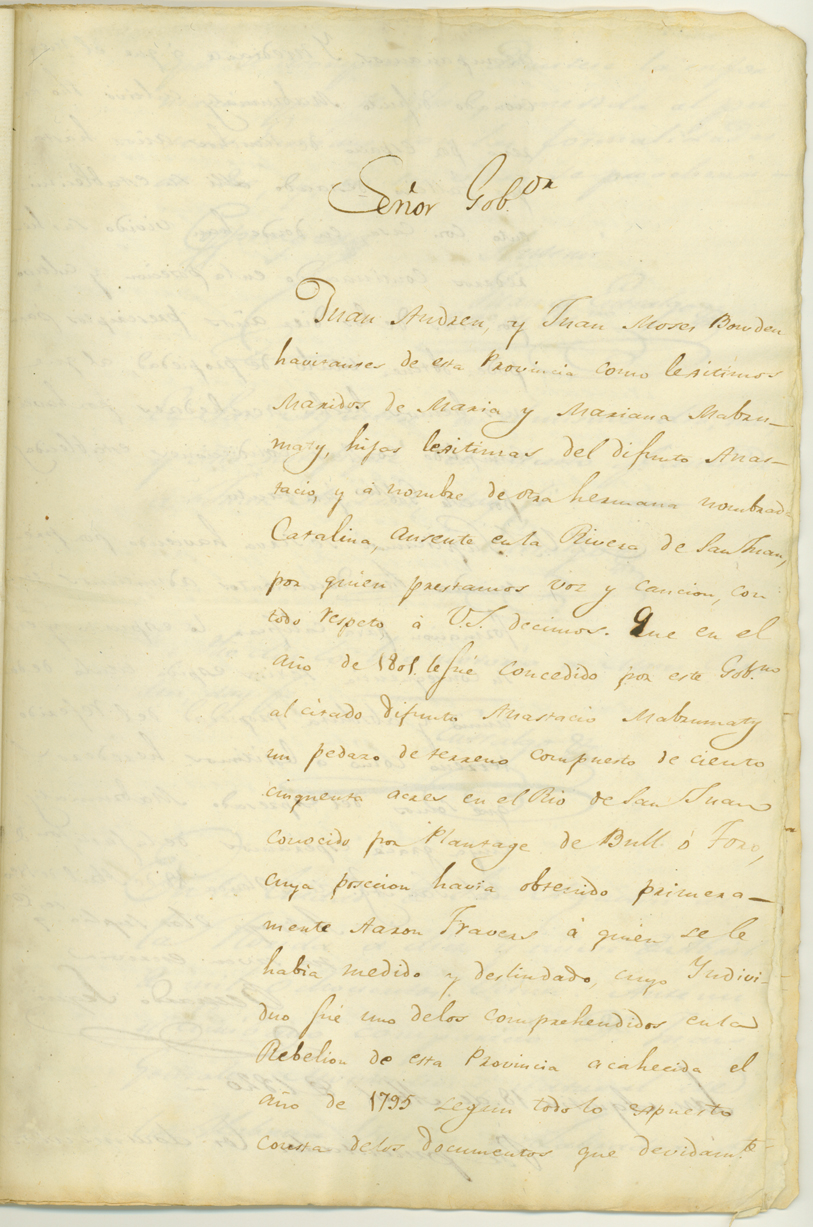 Señor Gob.or
Juan Andreu, y Juan Moses Bowden
havitantes de esta Provincia como lexitimos
Maridos de Maria y Mariana Mabru-
maty, hijas lexitimas del difunto Anas-
tacio, y á nombre de otra hermana nombrada
Catalina, ausente en la Rivera de San Juan,
por quien prestamos voz y caucion, con
todo respeto á V.S. decimos. Que en el
año de 1801. le fué concedido por este Gob.no
al citado difunto Anastacio Mabrumaty
un pedazo de terreno compuesto de ciento
cinquenta acres en el Rio de San Juan
conocido por Plantage de Bull ó Toro,
cuya poscion havia obtenido primera-
mente Aaron Travers á quien se le
habia medido y deslindado, cuyo Indivi-
duo fué uno de los comprehendidos en la
Rebelion de esta Provincia acahecida el
año de 1795 segun todo lo expuesto
consta de los documentos que devidam.te